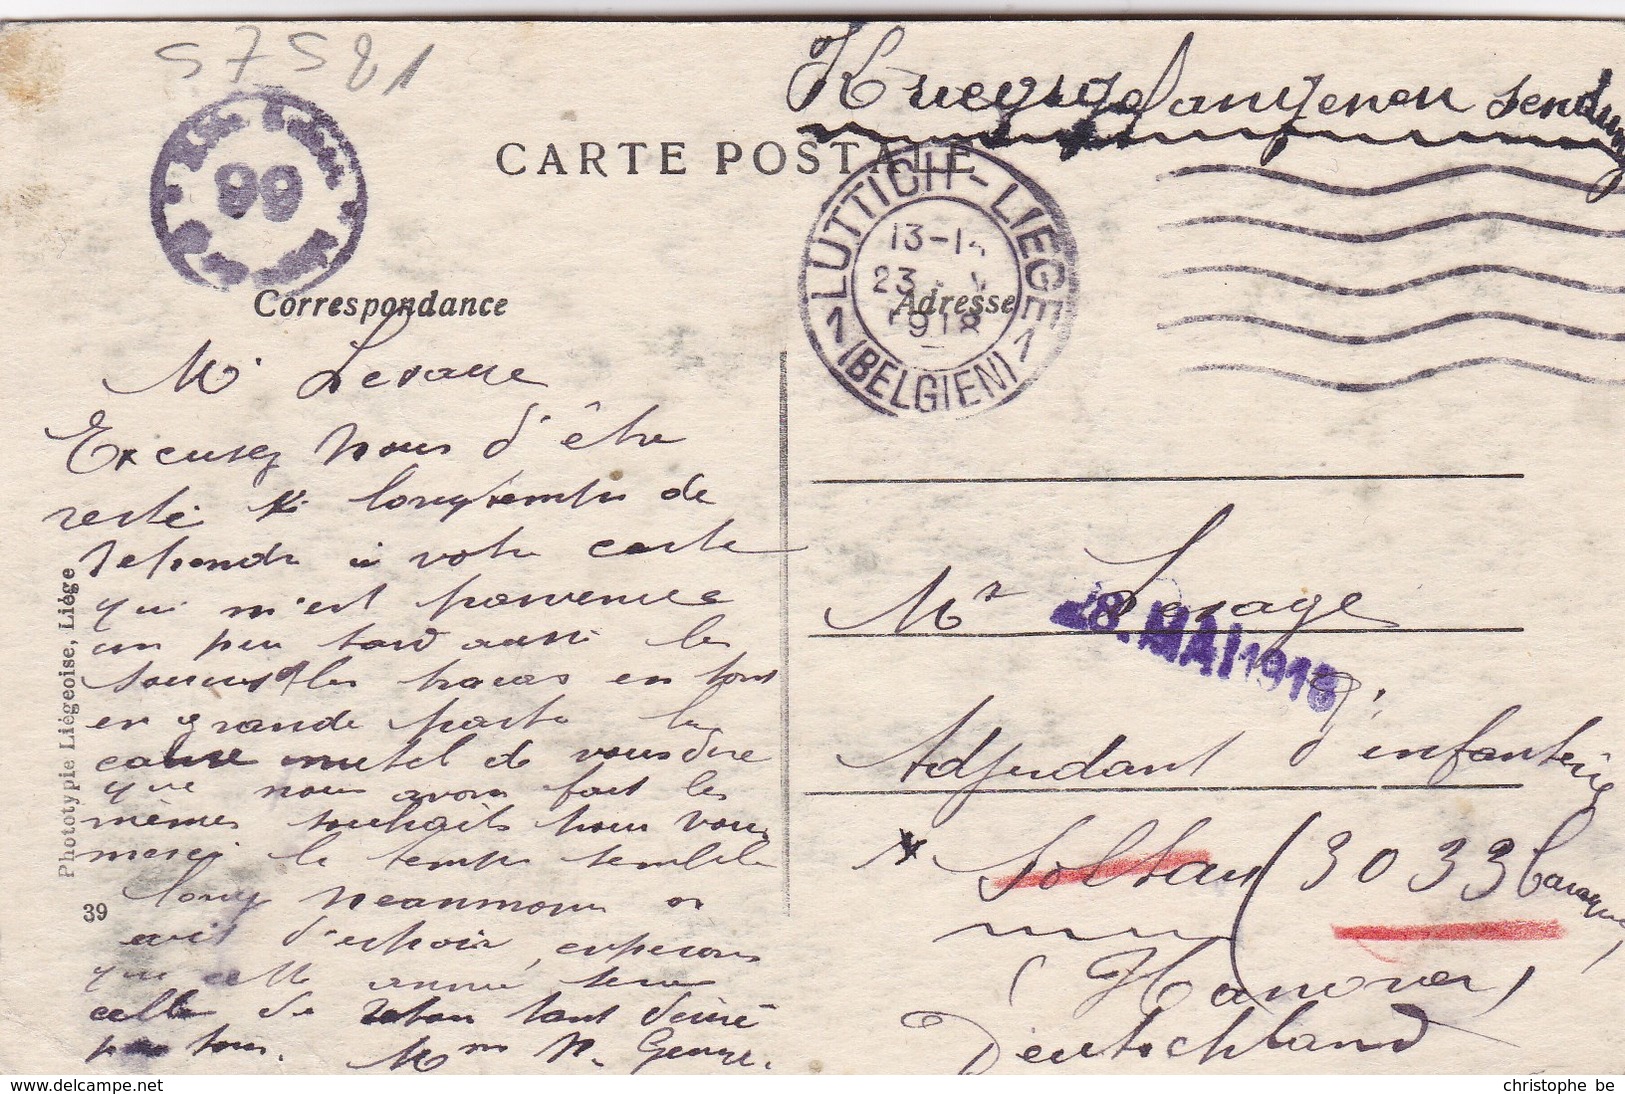 57581
Kriegsgefangenen sendung
99
CARTE POSTALE
LÜTTICH - LIÈGE
13-1
23
1918
1 (BELGIEN) 1
Correspondance
Adresse
Mr Lesage
Excusez nous d'être
resté si longtemps de
repondre à votre carte
qui m'est parvenue
un peu tard aussi les
soucis les tracas en sont
en grande partie la
cause de vous dire
que nous avons fait les
mêmes souhaits pour vous
merci le temps semble
long neanmoins on
vit d'espoir, esperons
que cette année sera
celle du retour tant désiré
par tous. Mme N. George.
Phototypie Liégeoise, Liége
39
Mr Lesage
28. MAI 1918
Adjudant d'infanterie
Soltau (3033 Baraque
(Hanover)
Deutschland
christophe be